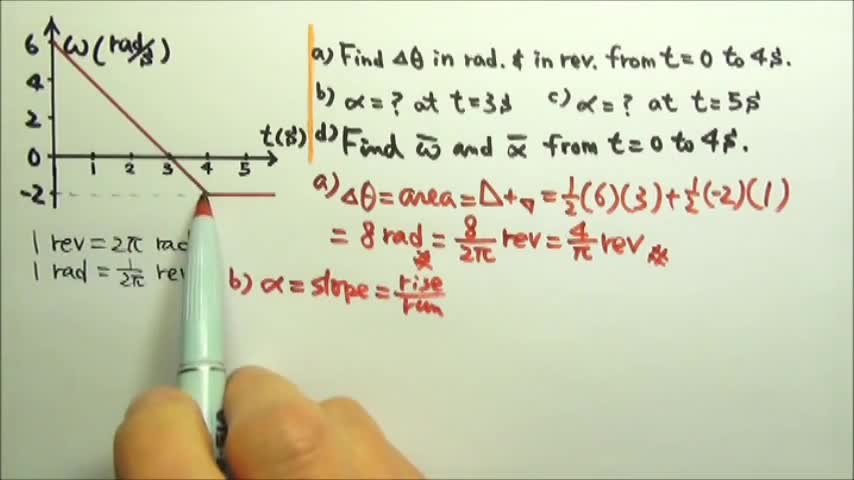 6 ω (rad/s)
4
2
0 1 2 3 4 5 t(s)
-2
1 rev = 2π rad
1 rad = 1/2π rev
a) Find Δθ in rad. & in rev. from t = 0 to 4s.
b) α = ? at t = 3s c) α = ? at t = 5s
d) Find ω̅ and α̅ from t = 0 to 4s.
a) Δθ = area = △ + ▽ = 1/2 (6)(3) + 1/2 (-2)(1)
= 8 rad = 8/2π rev = 4/π rev
b) α = slope = rise/run